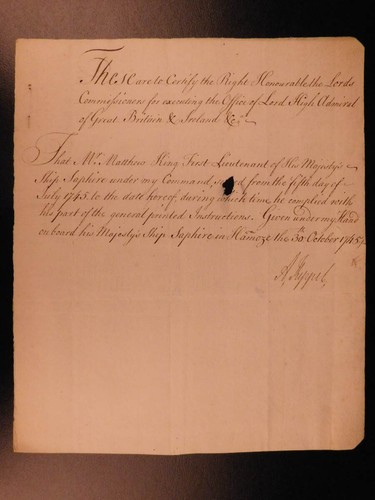 These are to Certify the Right Honourable the Lords
Commissioners for executing the Office of Lord High Admiral
of Great Britain & Ireland &c
That Mr. Matthew King First Lieutenant of His Majesty's
Ship Saphire under my Command, from the fifth day of
July 1745. to the date hereof, during which time he complied with
his part of the general printed Instructions. Given under my Hand
on board his Majesty's Ship Saphire in Hamoze the 30th October 1745
A, Keppel